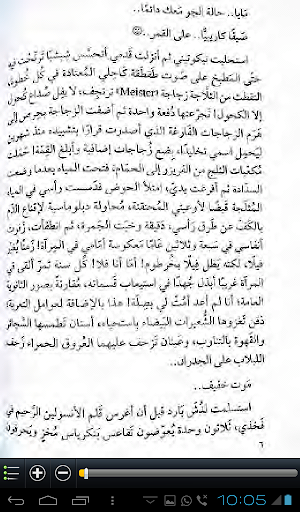 مايا.. حالة الجو معك دائمًا..
صيفًا كاريبيًّا.. على القمر..☺
استحلبت نيكوتيني ثم أنزلت قدمي أتحسس شبشبًا ترنحت فيه
حتى المطبخ على صوت طقطقة كاحلي المعتادة في كل خطوة،
التقطت من الثلاجة زجاجة (Meister) ترتجف، لا يفل صداع الكحول
إلا الكحول! تجرعتها دفعة واحدة ثم أضفت الزجاجة بحرص إلى
هرم الزجاجات الفارغة الذي أصدرت قرارًا بتشييده منذ شهرين
ليحمل اسمي تخليدًا، بضع زجاجات إضافية وأبلغ القمة! حملت
مكعبات الثلج من الفريزر إلى الحمام، فتحت المياه بعدما وضعت
السدادة ثم أفرغت يدي، امتلأ الحوض فدسست رأسي في المياه
المثلجة قبضًا لأوعيتي المحتقنة، محاولة دبلوماسية لإقناع الدم
بالكف عن طرق رأسي، دقيقة وخبت الجمرة، ثم انطفأت، زفرت
أنفاسي في سبعة وثلاثين عامًا معكوسة أمامي في المرآة! زمنًا يُهرم
فيلًا، لكنه يظل فيلًا بخرطوم! أما أنا فلا! كل سنة تمر ألقى في
المرآة غريبًا أبذل جهدًا في استيعاب قسماته، مقارنة بصور الثانوية
العامة؛ أنا لم أعد أمُتّ لي بصلة! هذا بالإضافة لعوامل التعرية؛
ذقن تغزوها الشعيرات البيضاء باستحياء، أسنان تطمسها السجائر
والقهوة بالتناوب، وعينان تزحف عليهما العروق الحمراء زحف
اللبلاب على الجدران..
موت خفيف..
استسلمت لدُش بارد قبل أن أغرس قلم الأنسولين الرحيم في
فخذي، ثلاثون وحدة يُعوضون تقاعس بنكرياس مُخزٍ ويحرقون
٦
10:05